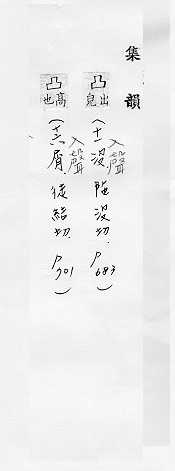 集韻
凸 出皃 (十一沒 陁沒切. P683)
入聲
凸 高也 (十六屑 徒結切. P701)
入聲